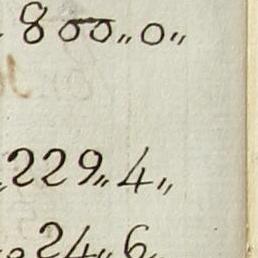 800„0„
229„4„
24„6